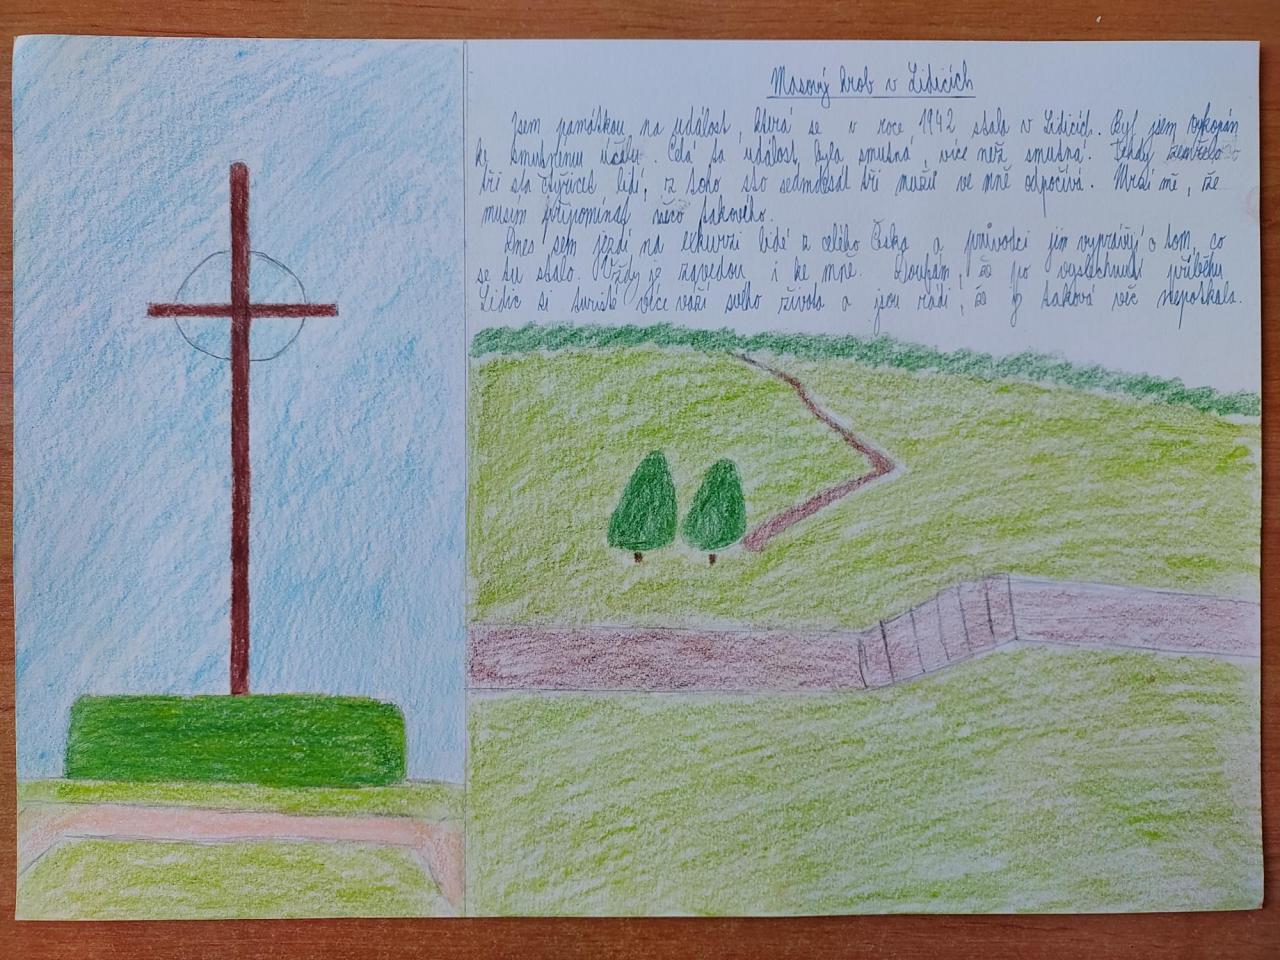 Masový hrob v Lidicích
Jsem památkou na událost, která se v roce 1942 stala v Lidicích. Byl jsem vykopán
ke smutnému účelu. Celá ta událost byla smutná, více než smutná. Tehdy zemřelo
tři sta čtyřicet lidí, z toho sto sedmdesát tři mužů ve mně odpočívá. Mrzí mě, že
musím připomínat něco takového.
Dnes sem jezdí na exkurzi lidé z celého Česka a průvodci jim vyprávějí o tom, co
se tu stalo. Vždy je zavedou i ke mně. Doufám, že po vyslechnutí příběhu
Lidic si turisté více váží svého života a jsou rádi, že je taková věc nepotkala.